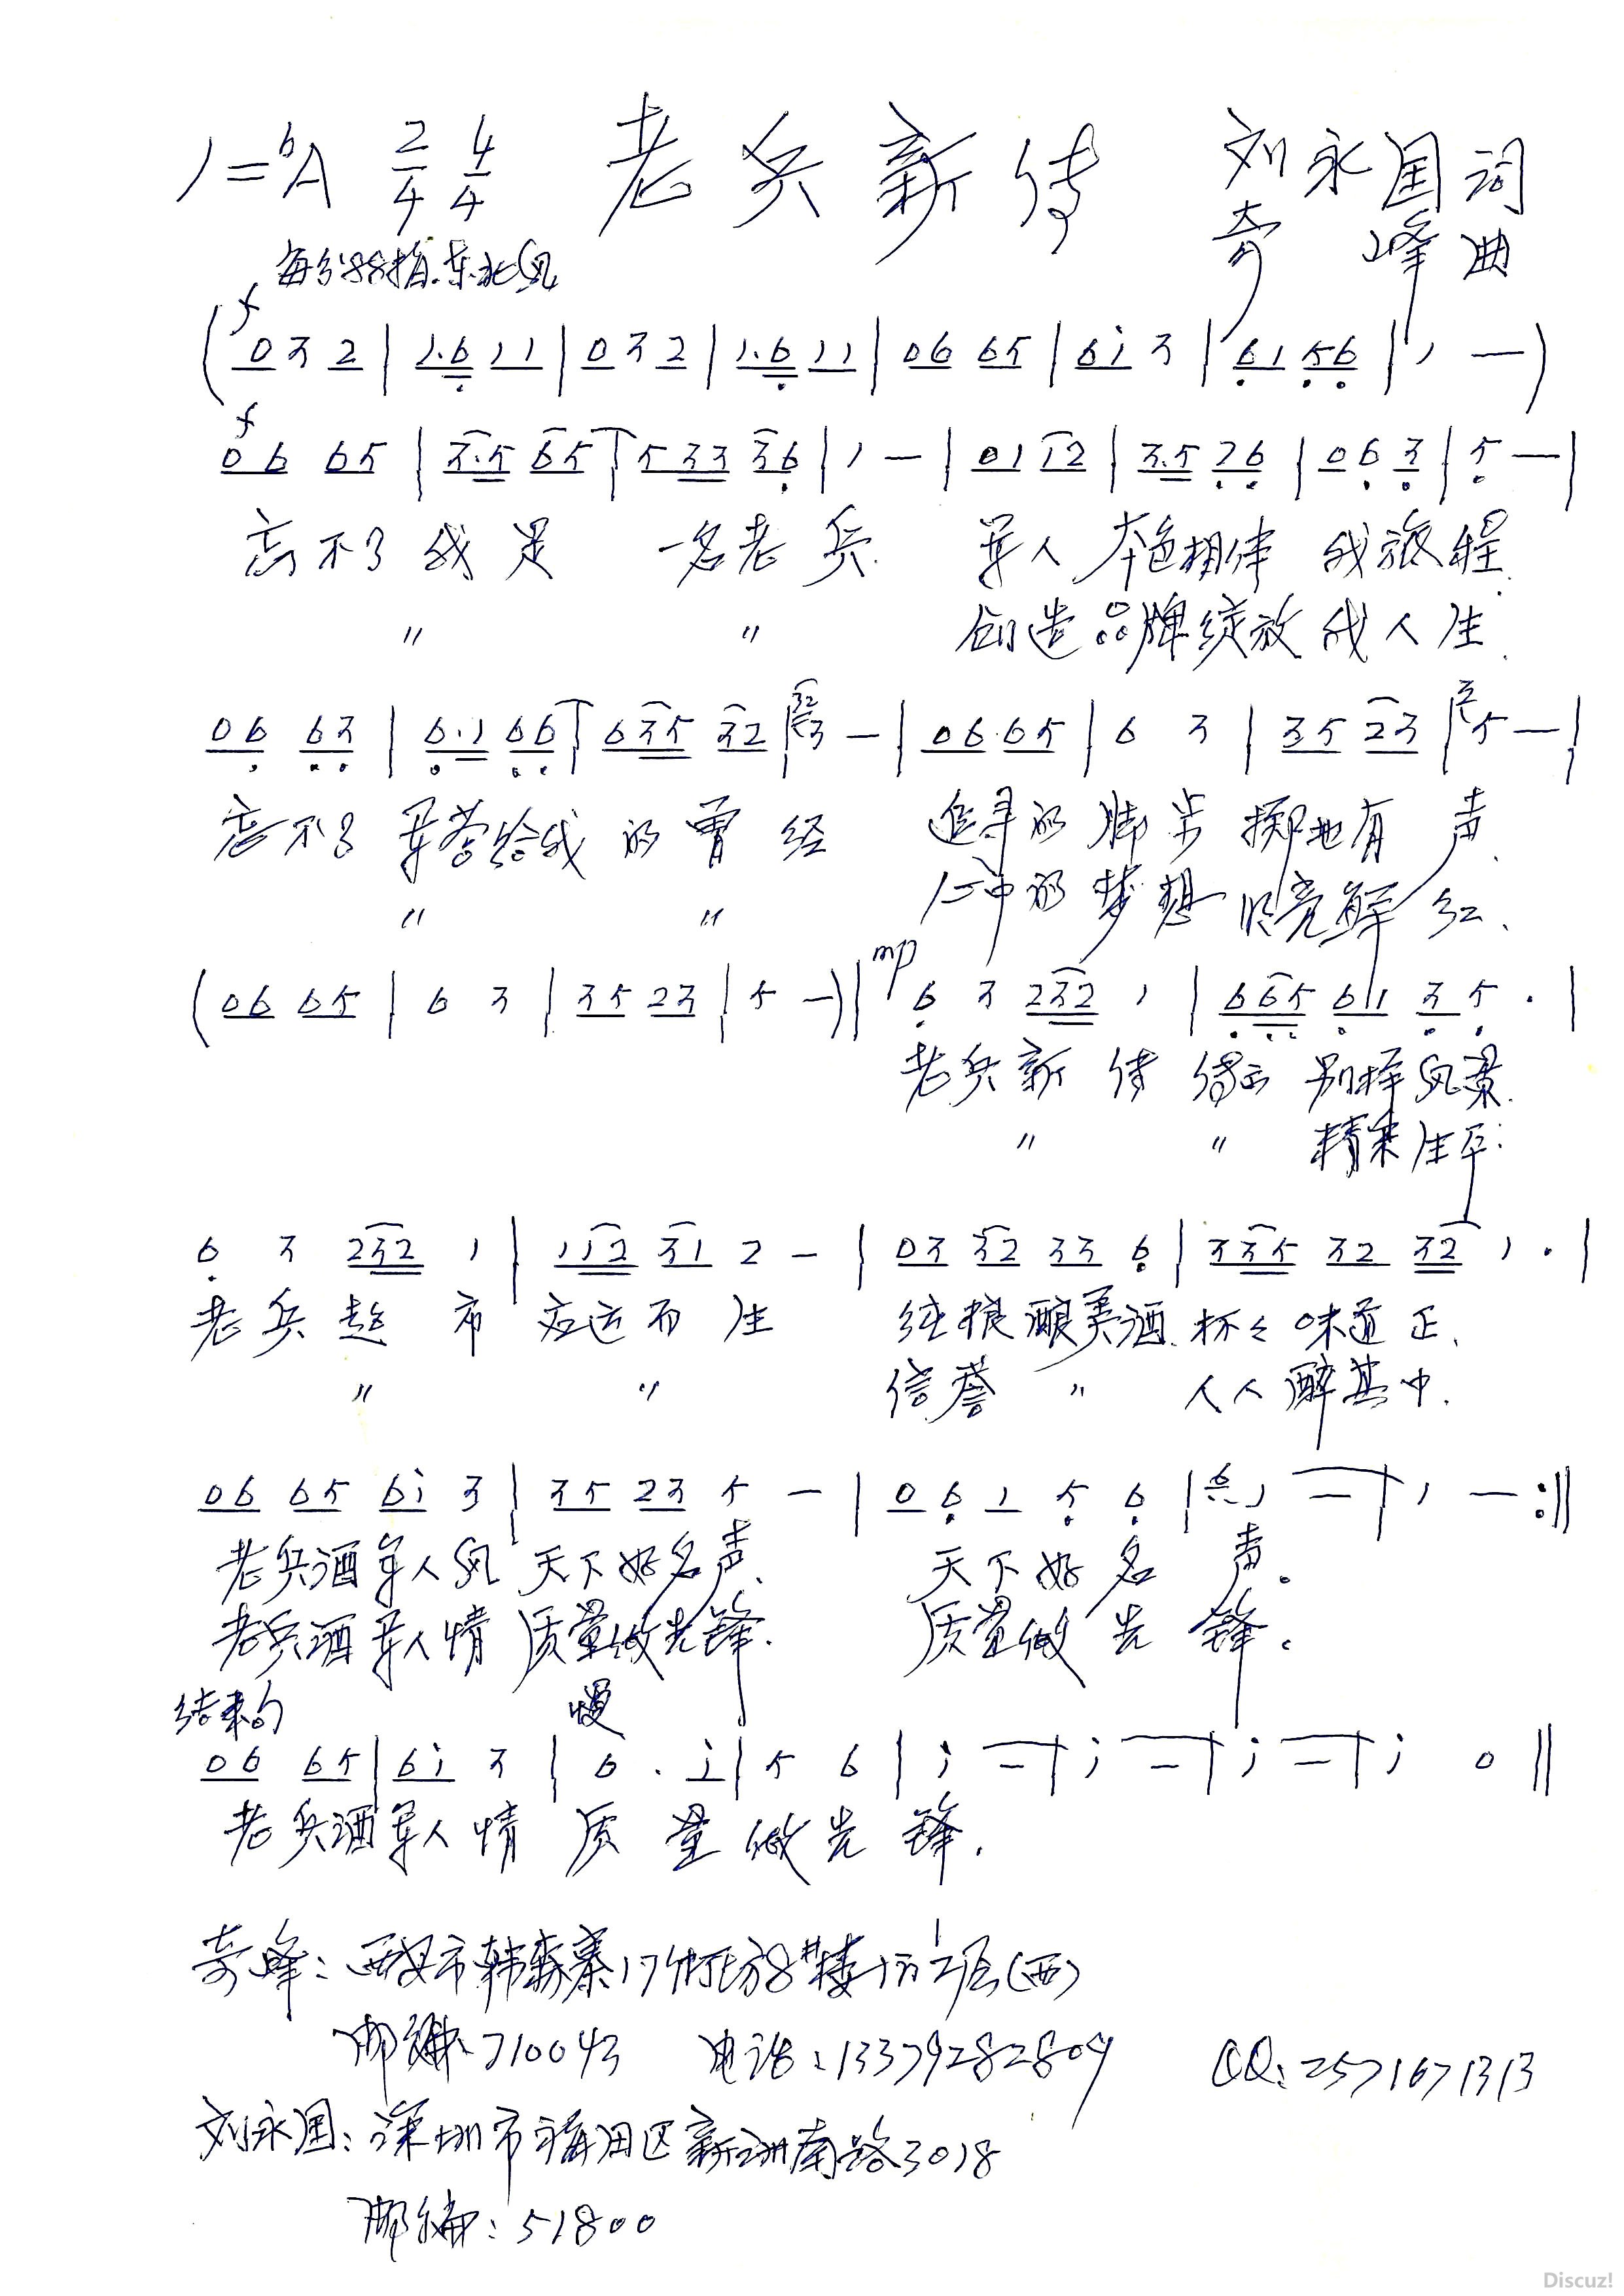 1=ᵇA 2/4 4/4 老兵新传 刘永国词
奇峰曲
每分88拍.东北风
f
(0 3 2 | 1.6 1 1 | 0 3 2 | 1.6 1 1 | 06 65 | 6i 3 | 61 56 | 1 — )
f
06 65 | 3.5 65 | 5 33 36 | 1 — | 01 12 | 3.5 26 | 06 3 | 5 — |
忘不了我是 一名老兵. 军人本色相伴我旅程.
〃 〃 创造品牌绽放我人生.
06 63 | 6.1 66 | 6 35 32 | 32 3 — | 06 65 | 6 3 | 35 23 | 3 5 — |
忘不了军营给我的曾经 追寻的脚步掷地有声.
〃 〃 心中的梦想 鲜红.
mp
(06 65 | 6 3 | 35 23 | 5 —) | 6 3 232 1 | 665 61 3 5 · |
老兵新传 别样风景.
〃 〃 精采生平.
6 3 232 1 | 112 31 2 — | 03 32 33 6 | 335 32 32 1 · |
老兵趁市应运而生 纯粮酿美酒.杯々味道正.
〃 〃 信誉 〃 人人醉其中.
06 65 6i 3 | 35 23 5 — | 0 6 1 5 6 | 6 1 — | 1 — :‖
老兵酒军人风天下好名声. 天下好名声。
老兵酒军人情质量做先锋. 质量做先锋。
结束句 慢
06 65 | 6i 3 | 6 . i | 5 6 | i — | i — | i — | i 0 ‖
老兵酒军人情质量做先锋.
奇峰:西安市韩森寨17街坊8#楼 1 层(西)
邮编:710043 电话:13379282809 QQ:2571671313
刘永国:深圳市福田区新洲南路3018
邮编:51800
Discuz!